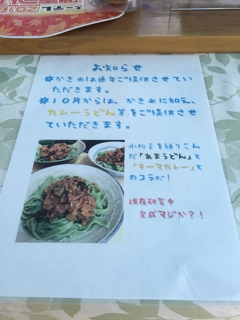 お知らせ
※かきれは通年ご提供させてい
ただきます。
※10月からは、かきれに加え、
カレーうどん等をご提供させ
ていただきます。
小松菜を練りこん
だ「あまうどん」と
「キーマカレー」と
のコラボ!
現在研究中
完成マジか?!